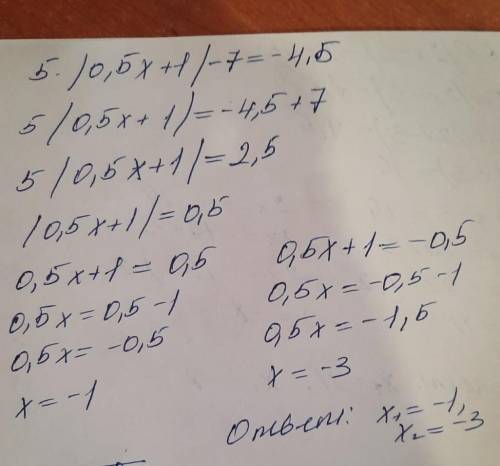 5·|0,5x+1|-7=-4,5
5|0,5x+1|=-4,5+7
5|0,5x+1|=2,5
|0,5x+1|=0,5
0,5x+1=0,5
0,5x=0,5-1
0,5x=-0,5
x=-1
0,5x+1=-0,5
0,5x=-0,5-1
0,5x=-1,5
x=-3
Ответ: x₁=-1,
x₂=-3